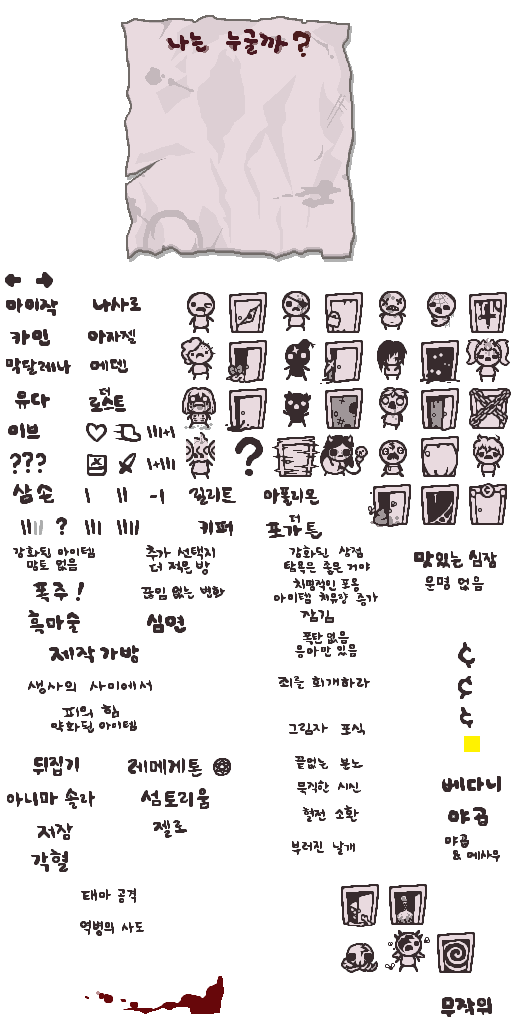 나는 누굴까?
아이작 나사로
카인 아자젤
막달레나 에덴
유다 더 로스트
이브 |||+|
??? |+|||
삼손 | || -| 릴리트 아폴리온
|||| ? ||| |||| 키퍼 더 포가튼
강화된 아이템
맘토 없음
추가 선택지
더 적은 방
강화된 상점
탐욕은 좋은 거야
맛있는 심장
운명 없음
폭주!
끊임 없는 변화
치명적인 포옹
아이템 치유량 증가
흑마술 심연
잠김
폭탄 없음
응아만 있음
제작 가방
생사의 사이에서
죄를 회개하라
¢
¢
¢
피의 힘
약화된 아이템
그림자 포식
뒤집기 레메게톤
끝없는 분노
묵직한 시신
베다니
아니마 솔라 섬토리움
혈전 소환
야곱
저장 젤로
부러진 날개
야곱
& 에사우
각혈
태마 공격
역병의 사도
무작위